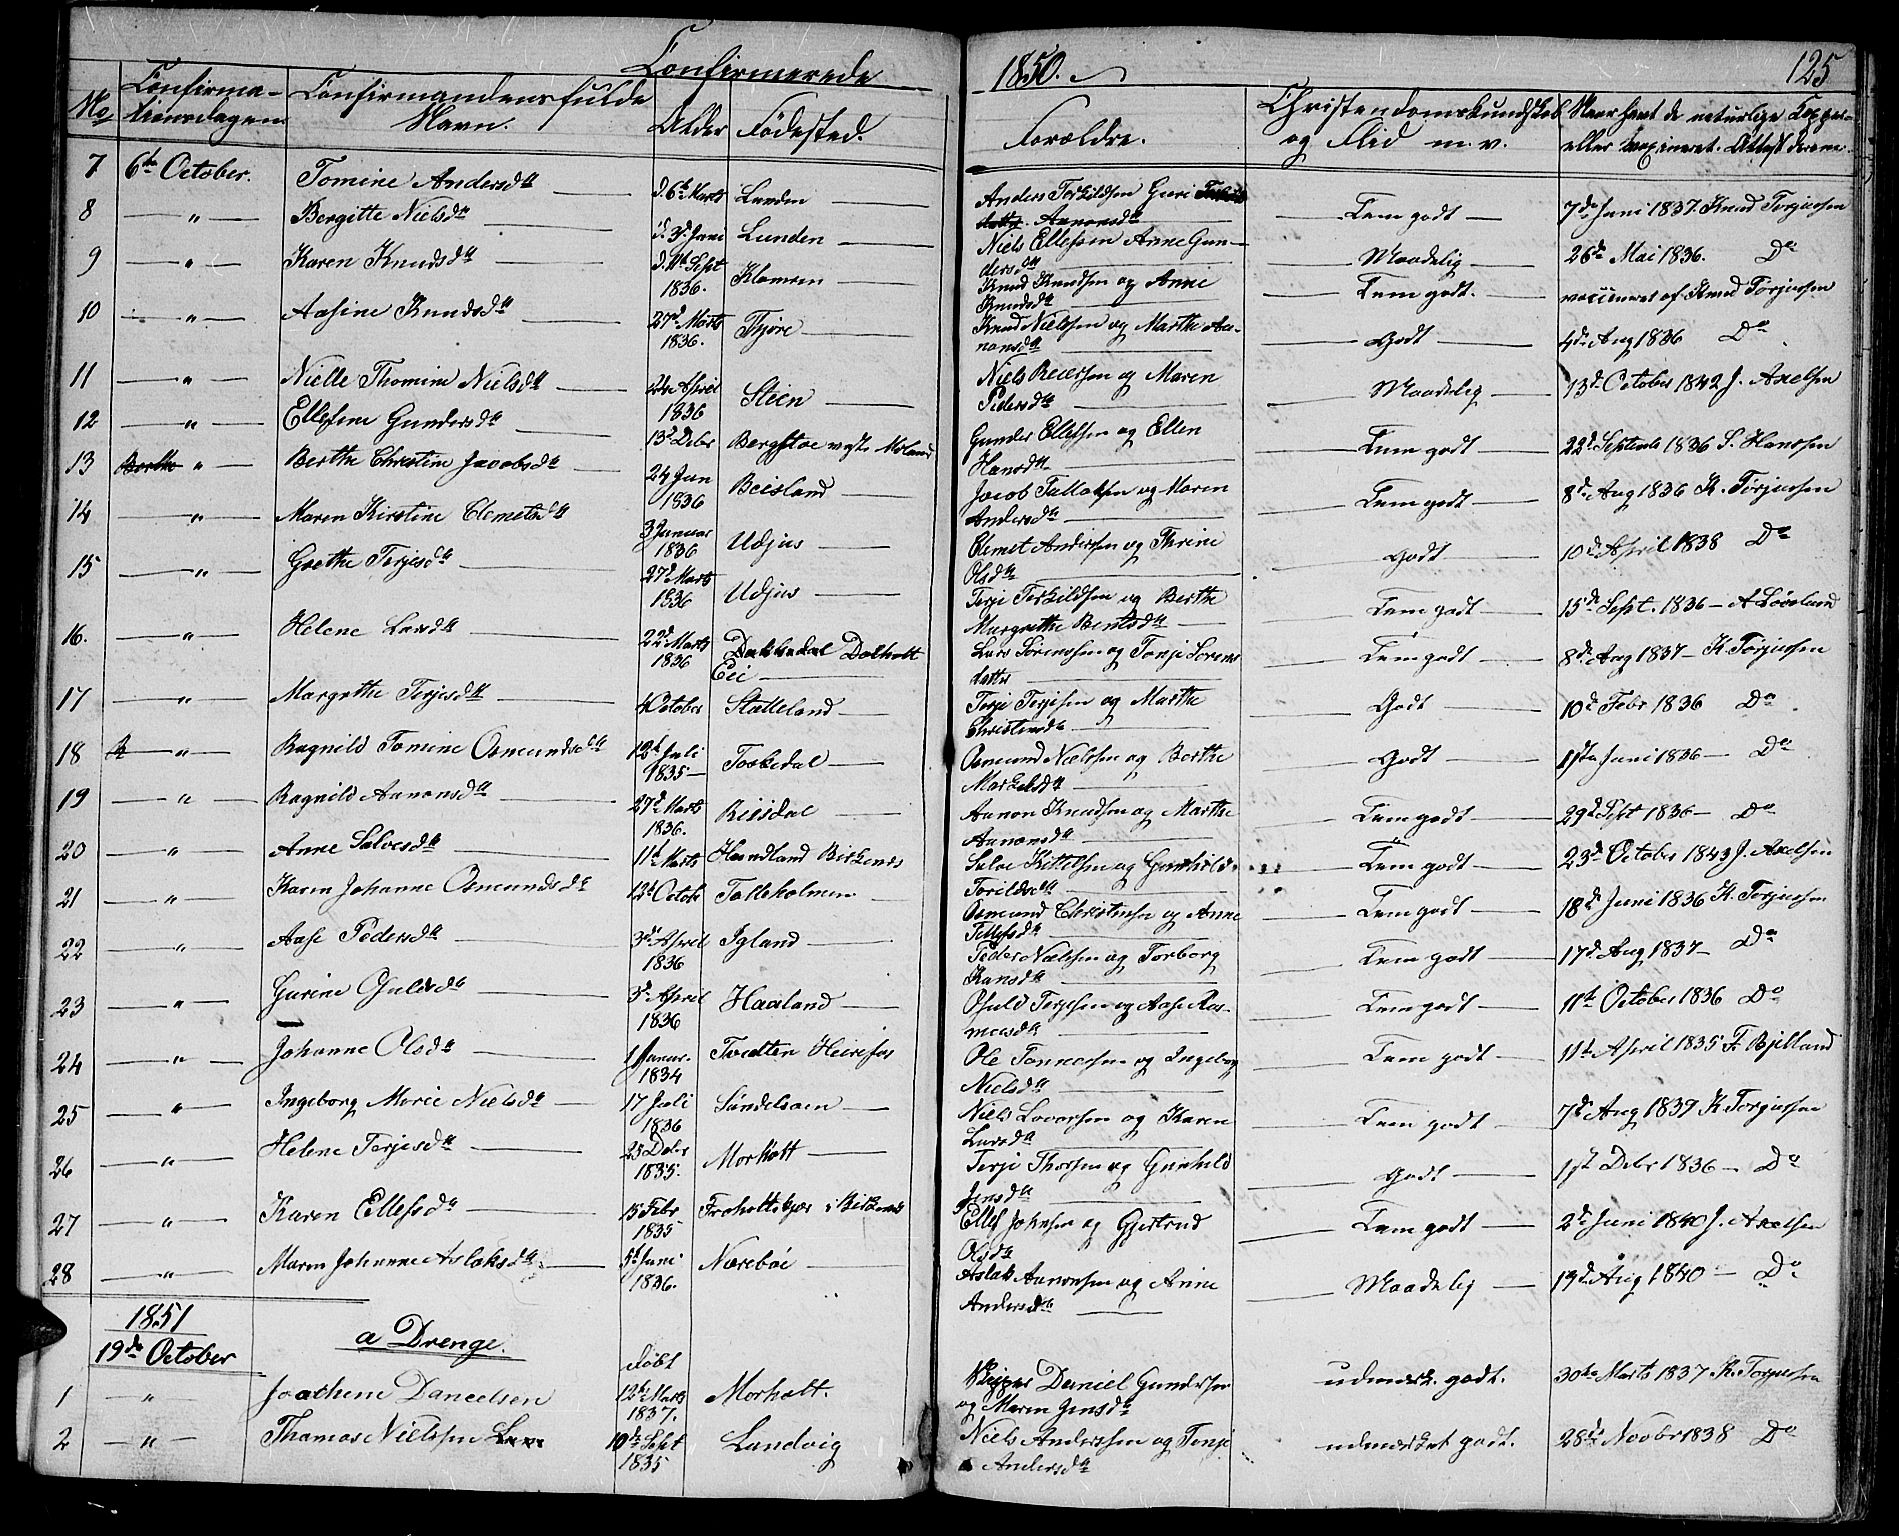 Confirmerede 1850. 125
No Confirmationsdagen Confirmandens fulde Navn. Alder Fødested. Forældre. Christendomskundskab og Flid m. v. Naar havt de naturlige Kopper eller vaxineret. Attest derom.
7 6te October. Tomine Andersdtr d. 6te Marts Lunden Anders Terkildsen Guri Aanonsdtr Temgodt 7de Juni 1837. Knud Torjussen
8 " Bergitte Nielsdtr d. 3d. Juni Lunden Niels Ellefsen Anne Gundersdtr Maadelig 26de Mai 1836. Do
9 " Karen Knudsdtr d. 11te Sept 1836. Klomren Knud Knudsen og Anne Knudsdtr Temgodt. vaccineret af Knud Torjussen
10 " Aasine Knudsdtr 27d. Marts 1836. Thjøre Knud Nielsen og Marthe Aanonsdtr Godt 4de Aug 1836 Do
11 " Nielle Thomine Nielsdtr April 1836 Steen Niels Reiersen og Maren Pedersdtr Maadelig 13de October 1842 J. Axelsen
12 " Ellefine Gundersdtr 13d Debr Bergstøe vestre Moland Gunder Ellefsen og Ellen Hansdtr Temgodt 22de Septemb 1836 S. Hanssen
13 " Berthe Christine Jacobsdtr 24 Jan 1836 Beisland Jacob Tallaksen og Maren Andersdtr Temgodt 8de Aug 1836 K. Torjussen
14 " Maren Kirstine Clemetsdtr 3 Januar 1836 Udjus Clemet Anderssen og Thrine Olsdtr Godt 10de April 1838 Do
15 " Grethe Terjesdtr 27d Marts 1836 Udjus Terje Terkildsen og Berthe Margrethe Bentsdtr Temgodt 15de Sept. 1836 A Løvland
16. " Helene Larsdtr 22d Marts 1836 Dalholt Eie Lars Sørenssen og Tonje Sørensdatter Temgodt 8de Aug 1837 K. Torjussen
17 " Margrethe Terjesdtr 4 October Stalleland Terje Terjesen og Marthe Christensdtr Godt 10de Febr 1836 Do
18 " Ragnild Tomine Osmundsdtr 12te Juli 1835 Toskedal Osmund Nielssen og Berthe Godt 1ste Juni 1836 Do
19 " Ragnild Aanonsdtr 27d Marts 1836. Reisdal Aanon Knudsen og Marthe Aanonsdtr Temgodt 29de Sept 1836 Do
20 " Anne Salvesdtr 11te Marts Haandland Birkenes Salve Kittelsen og Gunhild Torildsdtr Temgodt 23de October 1843 J. Axelsen
21 " Karen Johanne Osmundsdtr 12te Octobr Talleholmen Osmund Christensen og Anne Tellefsdtr Temgodt 18de Juni 1836 K. Torjussen
22 " Aase Pedersdtr 3d. April 1836 Igland Peder Nielssen og Torborg Hansdtr Temgodt 17de Aug 1837 Do
23 " Gurine Osuldsdtr 3d. April 1836 Haaland Osuld Terjesen og Aase Rasmusdtr Temgodt 11te October 1836 Do
24 " Johanne Olsdtr 1 Januar. 1834 Tvedten Heirefos Ole Tonnessen og Ingeborg Nielsdtr Temgodt 11te April 1835 F. Bjelland
25 " Ingeborg Marie Nielsdtr 17 Juli 1836 Sundelsaen Niels Lovorsen og Karen Larsdtr Temgodt 7de Aug 1839 K Torjussen
26 " Helene Terjesdtr 23 Debr 1835. Morholt Terje Thorsen og Gunhild Jensdtr Godt 1ste Debr 1836 Do
27 " Karen Ellefsdtr 15 Febr 1835 Froholtskjær i Birkenes Ellef Johnsen og Gjertrud Olsdtr Temgodt 2de Juni 1840 J. Axelsen
28 " Maren Johanne Aslaksdtr 5te Juni 1836. Nærebøe Aslak Aanonsen og Anne Andersdtr Maadelig 13de Aug 1840 Do
1851
19de October a Drenge. Født
1 " Joachene Daneelsen 12te Marts 1837. Morholt. Daniel Gundersen og Maren Jensdtr udmærk. godt. 30te Marts 1837 K. Torjussen
2 " Thomas Nielssen 10de Sept 1835 Landvig Niels Anderssen og Tonje Andersdtr udmærket godt. 28de Novbr 1838 Do